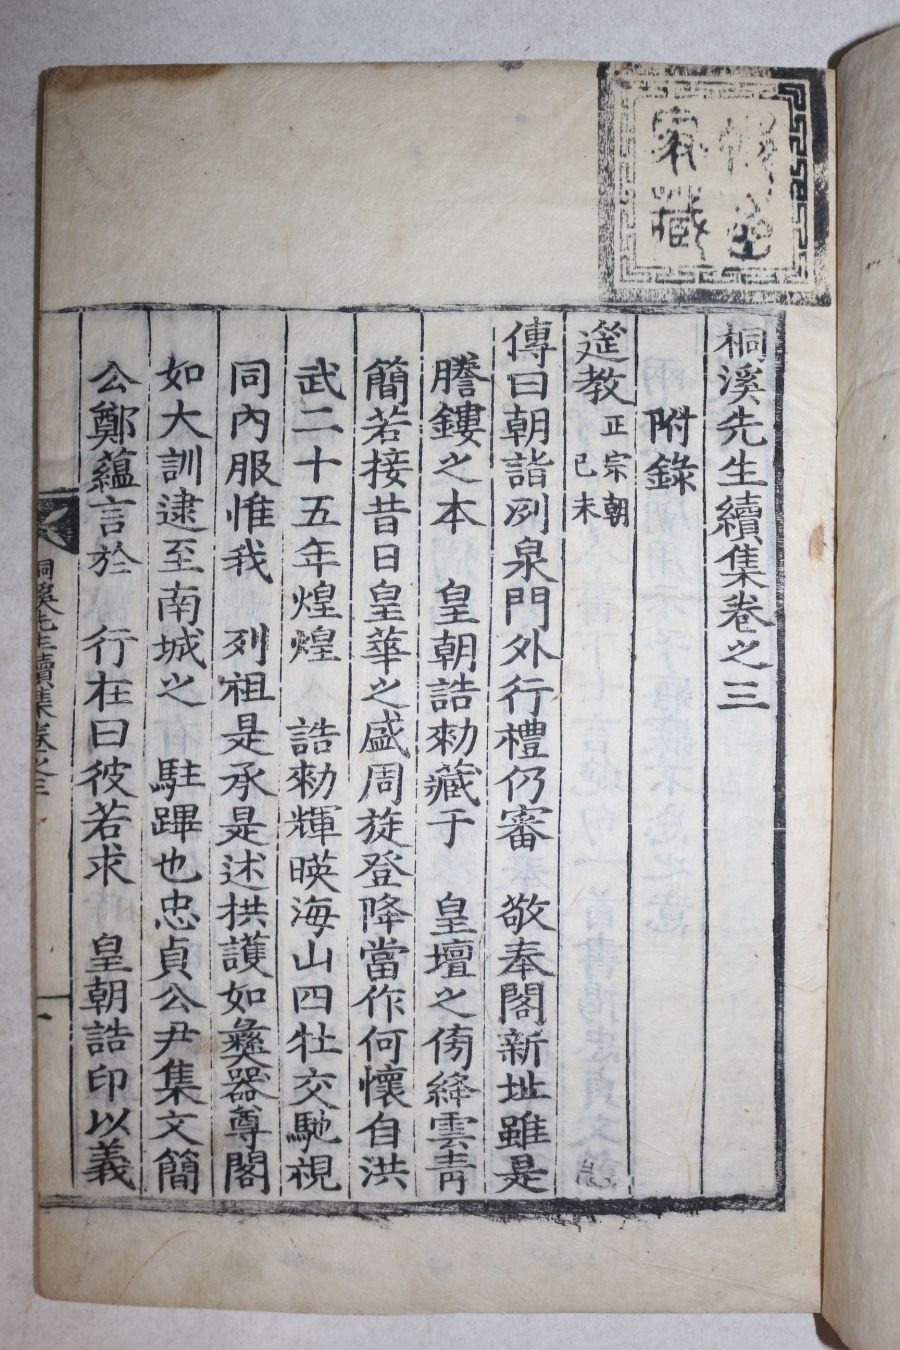 家藏
桐溪先生續集卷之三
附錄
筵教 正宗朝己未
傳曰朝詣洌泉門外行禮仍審 敬奉閣新址雖是
謄鏤之本 皇朝誥勑藏于 皇壇之傍絳雲靑
簡若接昔日皇華之盛周旋登降當作何懷自洪
武二十五年煌煌 誥勑輝暎海山四牡交馳視
同內服惟我 列祖是承是述拱護如彝器尊閣
如大訓逮至南城之 駐蹕也忠貞公尹集文簡
公鄭蘊言於 行在曰彼若求 皇朝誥印以義
桐溪先生續集卷之三 一